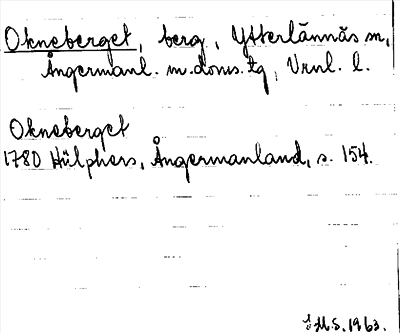 Okneberget, berg, Ytterlännäs sn,
Ångermanl. m. doms. tg, Vrnl. l.
Okneberget
1780 Hülphers, Ångermanland, s. 154.
S. 1963.